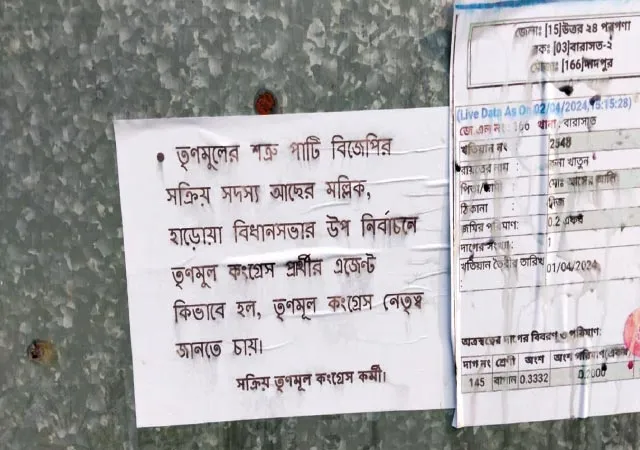 • তৃণমূলের শত্রু পার্টি বিজেপির
সক্রিয় সদস্য আছের মল্লিক,
হাড়োয়া বিধানসভার উপ নির্বাচনে
তৃণমুল কংগ্রেস প্রার্থীর এজেন্ট
কিভাবে হল, তৃণমূল কংগ্রেস নেতৃত্ব
জানতে চায়।
সক্রিয় তৃণমূল কংগ্রেস কর্মী।
জেলাঃ [15]উত্তর ২৪ পরগণা
ব্লকঃ [03]বারাসত-২
[166]দাদপুর
(Live Data As On 02/04/2024,
জে.এল নং : 166 থানা: বারাসাত
খতিয়ান নং : 2548
রায়তের নাম : খাতুন
ঠিকানা : নিজ
জমির পরিমাণ: 0.2 একর
দাগের সংখ্যা : 1
খতিয়ান তৈরীর তারিখ 01/04/2024
অত্রস্বত্বের দাগের বিবরণ ও পরিমাণ:
দাগ নং শ্রেণী অংশ অংশ পরিমাণ
145 বাগান 0.3332 0.2000